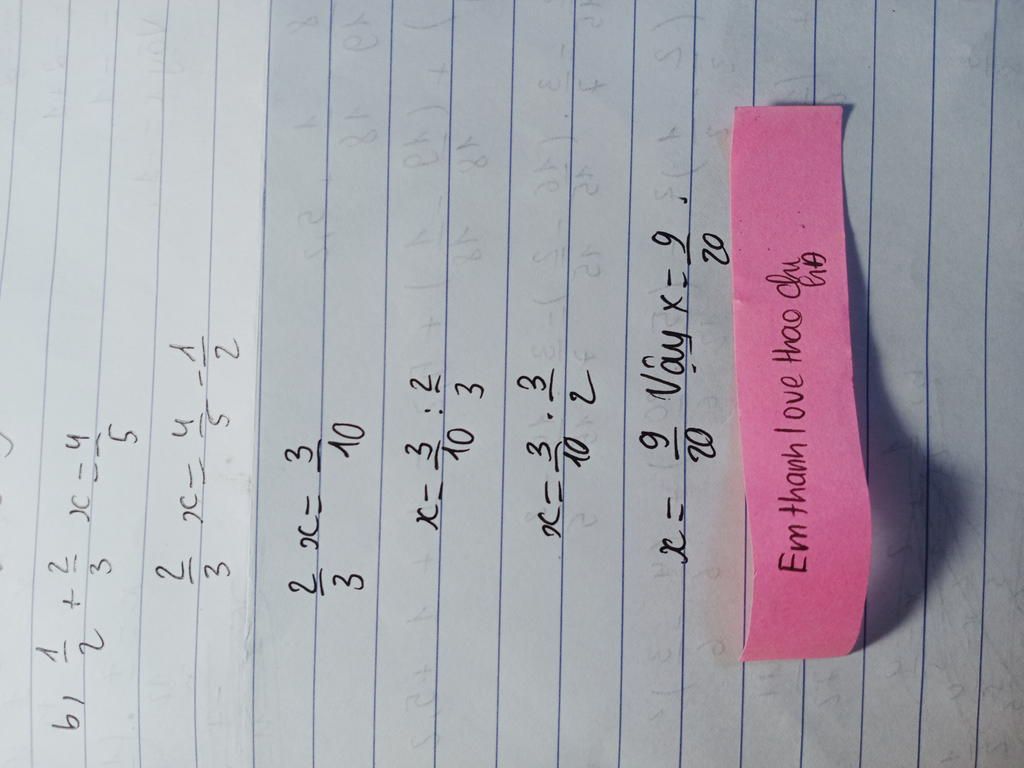 b) 1/2 + 2/3 x = 4/5
2/3 x = 4/5 - 1/2
2/3 x = 3/10
x = 3/10 : 2/3
x = 3/10 . 3/2
x = 9/20 Vậy x = 9/20 .
Em thanh love thao chi